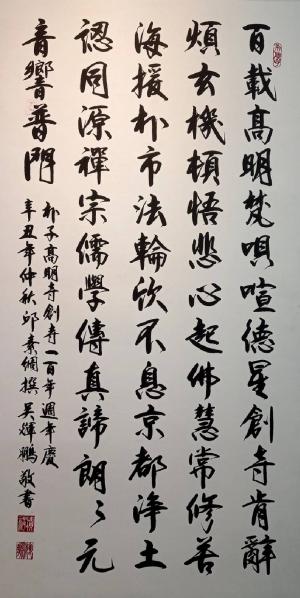 百載高明梵唄喧德星創寺肯辭
煩玄機頓悟悲心起佛慧常修善
海援朴市法輪欣不息京都淨土
認同源禪宗儒學傳真諦朗々元
音響普門
朴子高明寺創寺一百年週年慶
辛丑年仲秋邱素綢撰吳輝鶴敬書